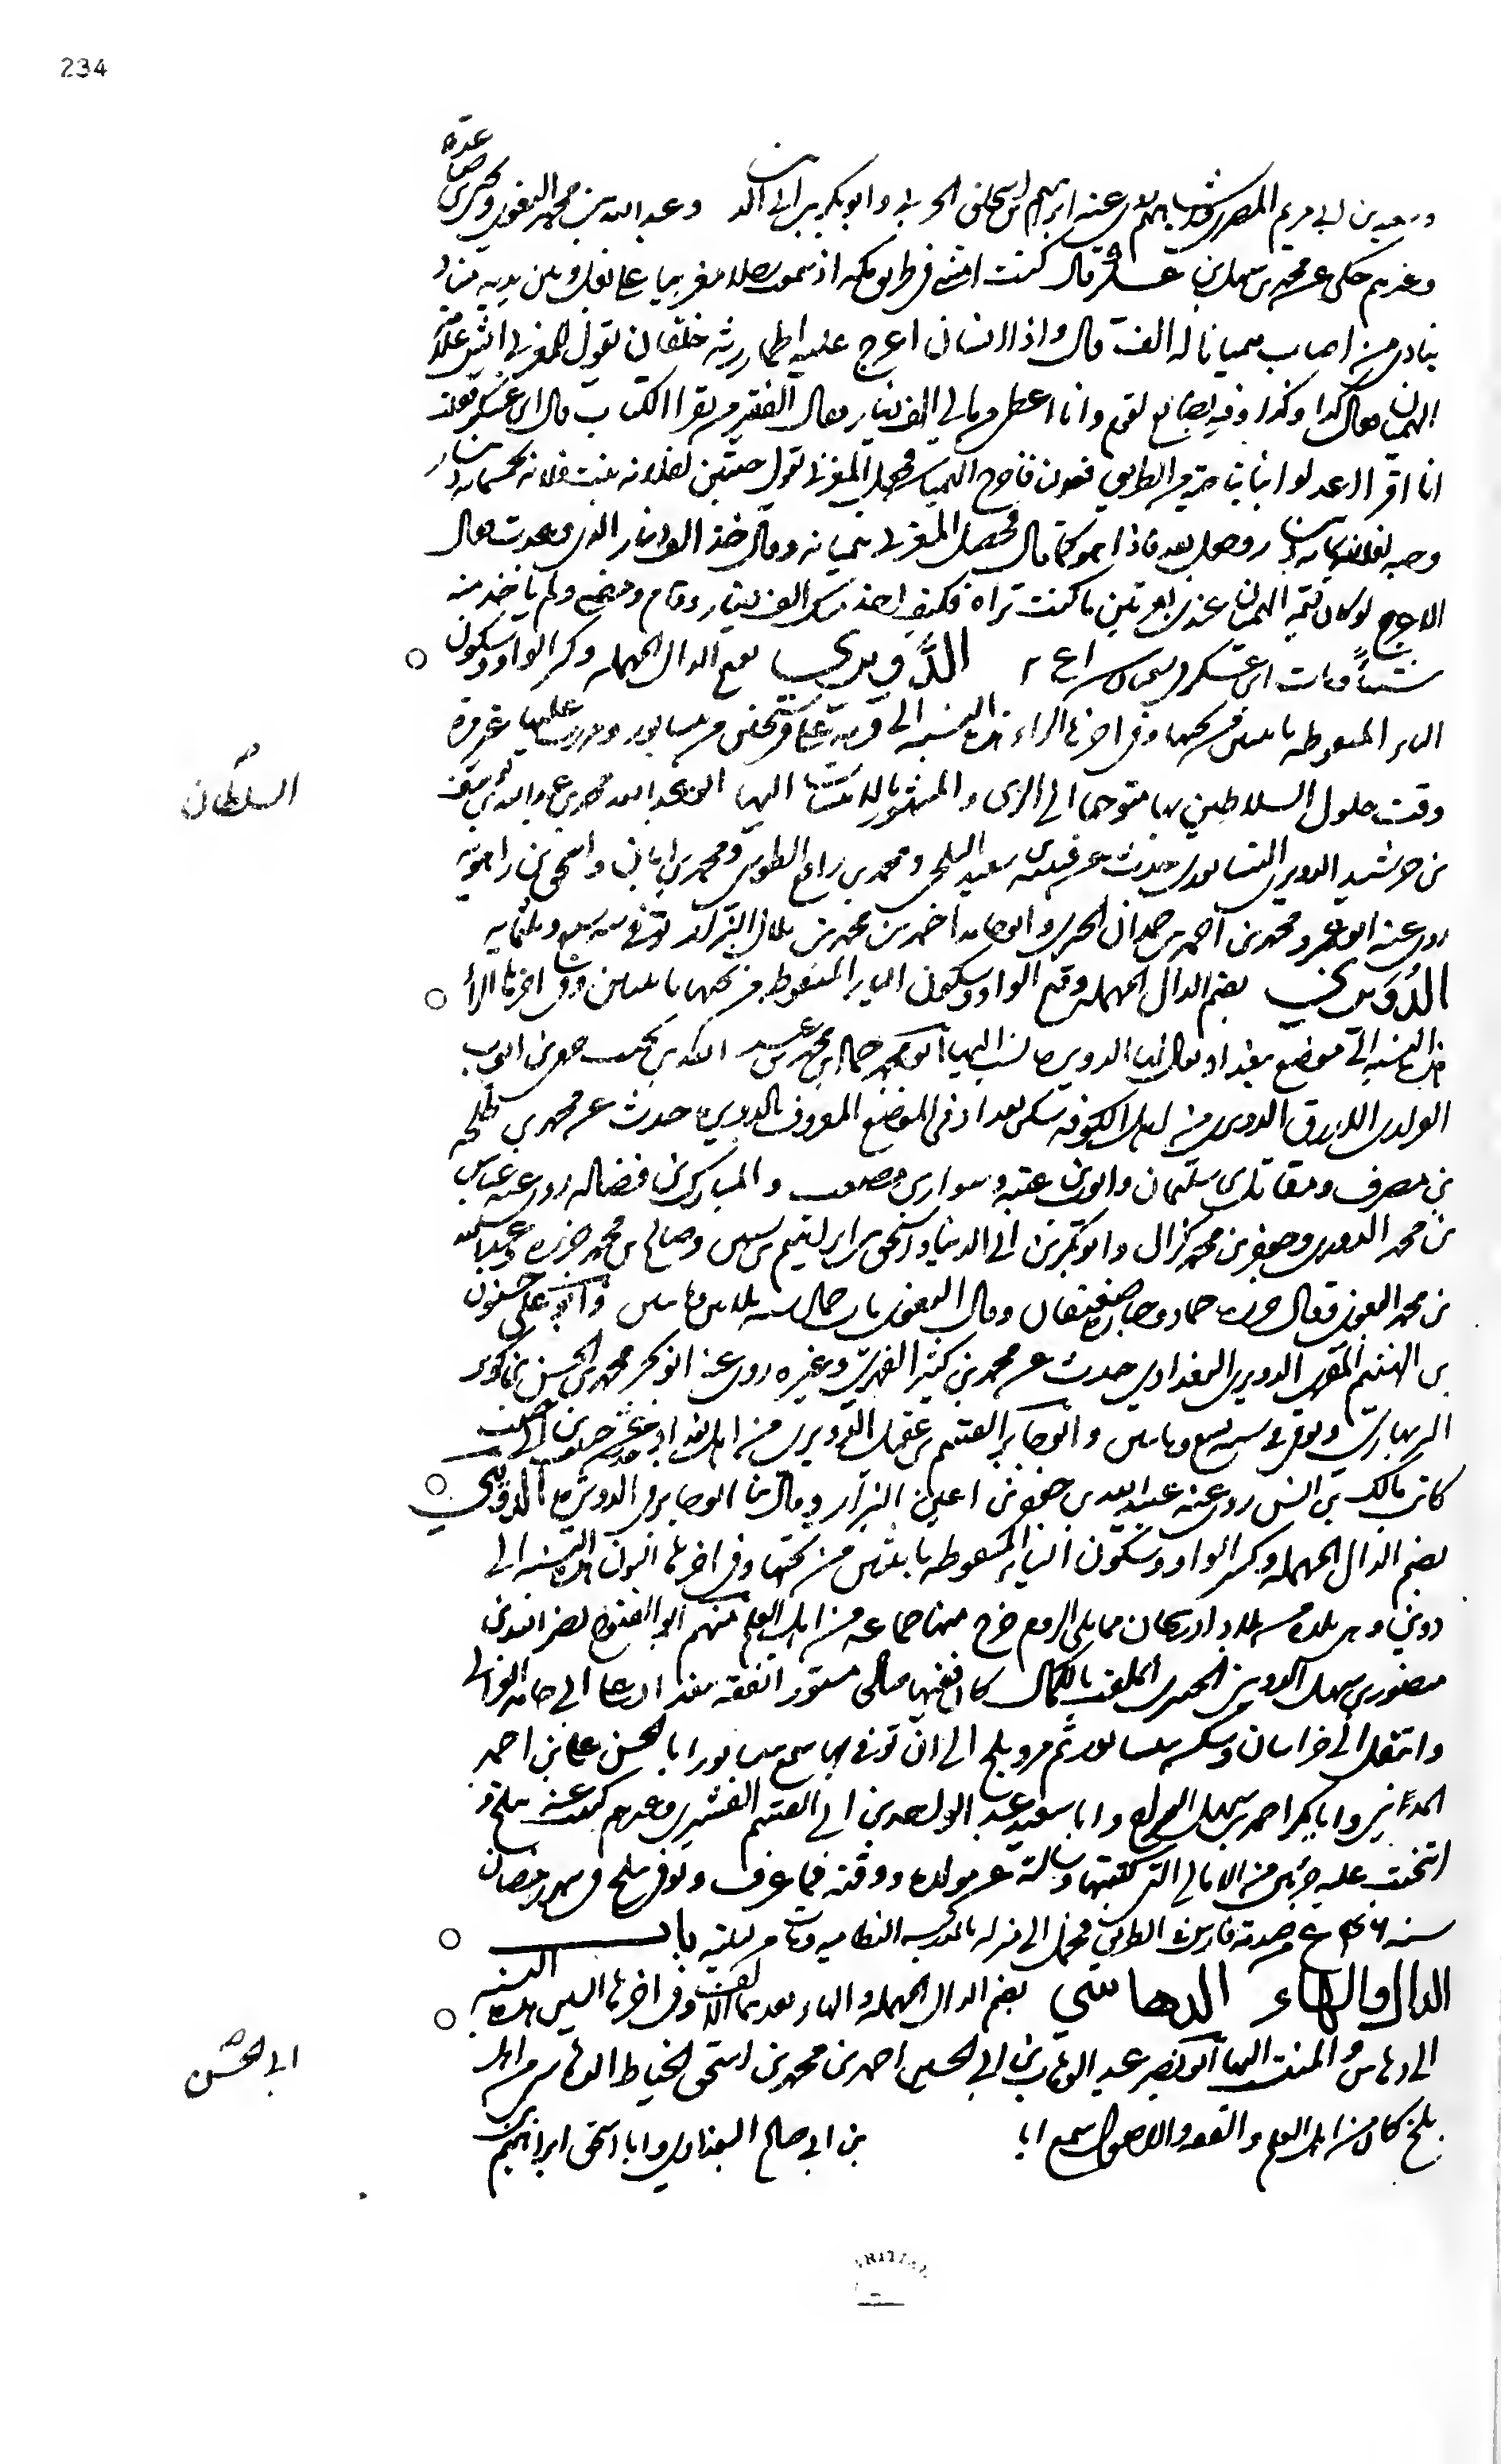 234
عدة
وسعيد بن ابي مريم المصري وغيرهم روى عنه ابرهيم بن اسحق الحربي وابو بكر بن ابي الد وعبد الله بن محمد البغوي
وغيرهم حكى عن محمد بن سهل بن عسكر قال كنت امشي في طريق مكة اذ سمعت رجلا مغربيا على بغل وبين يديه مناد
ينادي من اصاب هميانا له الف قال واذا انسان اعرج عليه اطمار رثة خلقان يقول للمغربي ايش علامة
الهميان فقال كذا وكذا وفيه بضايع لقوم وانا اعطي من مالي الف دينار فقال الفقير من يقرا الكتاب قال ابن عسكر فقلت
انا اقرا اعدلوا بنا ناحية من الطريق فعدلنا فاخرج الهميان فجعل المغربي يقول حبتين لفلانة بنت فلانة بخمسمائة دينار
وحبة لفلان بمائة دينار وجعل يعد فاذا هو كما قال فحل المغربي هميانه وقال خذ الف دينار الذي وعدت فقال
الاعرج لو كان قيمة الهميان عندي بعرتين ما كنت تراه فكيف اخذ منك الف دينار وقام ومضى ولم ياخذ منه
شيئا ومات ابن عسكر في شعبان سنة الدَّويري بفتح الدال المهملة وكسر الواو وسكون
الياء المنقوطة باثنتين من تحتها وفي اخرها الراء هذه النسبة الى قرية على فرسخين من نيسابور وعبرت عليها غير مرة
وقت حلول السلاطين بها متوجها الى الري والمشهور بالانتساب اليها ابو عبد الله محمد بن عبد الله بن يوسف
السلطان
بن خرشيد الدويري النيسابوري حدث عن قتيبة بن سعيد البلخي ومحمد بن رافع الطوسي ومحمد بن ابان واسحق بن راهويه
روى عنه ابو عمرو محمد بن احمد بن حمدان الحيري وابو حامد احمد بن محمد بن بلال البزاز توفي سنة سبع وثلثمايه
الدُوَيري بضم الدال المهملة وفتح الواو وسكون الياء المنقوطة من تحتها باثنتين وفي اخرها الراء
هذه النسبة الى موضع ببغداد يقال لها الدويرة نسب اليها ابو محمد حماد بن محمد بن عبد الله بن
الازرق الدويري من اهل الكوفة سكن بغداد في الموضع المعروف بالدويرة حدث عن محمد بن طلحة
بن مصرف ومقاتل بن سليمان وايوب بن عتبة وسوار بن مصعب والمبارك بن فضالة روى عنه عباس
بن محمد الدوري وجعفر بن محمد بن كزال وابو بكر بن ابي الدنيا واسحق بن ابرهيم بن سنين وصالح بن محمد جزرة وعبد الله
بن محمد البغوي فقال جزرة حماد وجبارة ضعيفان وقال البغوي مات حماد سنة ثلاثين وماتين وابو علي حسنون
بن الهيثم المقري الدويري البغدادي حدث عن محمد بن كثير الفهري وغيره روى عنه ابو بكر محمد بن الحسن بن كوثر
البربهاري وتوفي سنة تسع وماتين وابو جابر القسم بن عقيل الدويري من اهل بغداد حدث عن
كاتب مالك بن انس روى عنه عبيد الله بن جعفر بن اعين البزاز وقال ثنا ابو جابر في الدويرة الدُوِيني
بضم الدال المهملة وكسر الواو وسكون الياء المنقوطة باثنتين من تحتها وفي اخرها النون هذه النسبة الى
دوين وهي بلدة من بلاد اذربيجان مما يلي الروم خرج منها جماعة من اهل العلم منهم ابو الفتوح نصر الله بن
منصور بن سهل الدويني الجيري الملقب بالكمال كان فقيها صالحا مستورا تفقه ببغداد على ابي حامد الغزالي
وانتقل الى خراسان وسكن نيسابور ثم مرو بلخ الى ان توفي بها سمع بنيسابور ابا الحسن علي بن احمد
المديني وابا بكر احمد بن سهل السراج وابا سعيد عبد الواحد بن ابي القسم القشيري وغيرهم كتبت عنه ببلخ و
انتخبت عليه جزئين من الامالي التي كتبها وسالته عن مولده ووقته فما عرف وتوفي ببلخ في شهر رمضان
سنة ٥٤٦ في الطريق فحمل الى منزله بالمدرسة النظامية ومات من ليلته باب
الدال والهاء الدهاسي بضم الدال المهملة والهاء بعدها الالف وفي اخرها السين هذه النسبة
الى دهاس والمنتسب اليها ابو نصر عبد الوهاب بن ابي الحسين احمد بن محمد بن اسحق الخياط الدهاسي من اهل
ابي الحسن
بلخ كان من اهل العلم والفقه والاصول سمع ابا بن ابي صالح البغدادي وابا اسحق ابراهيم بن